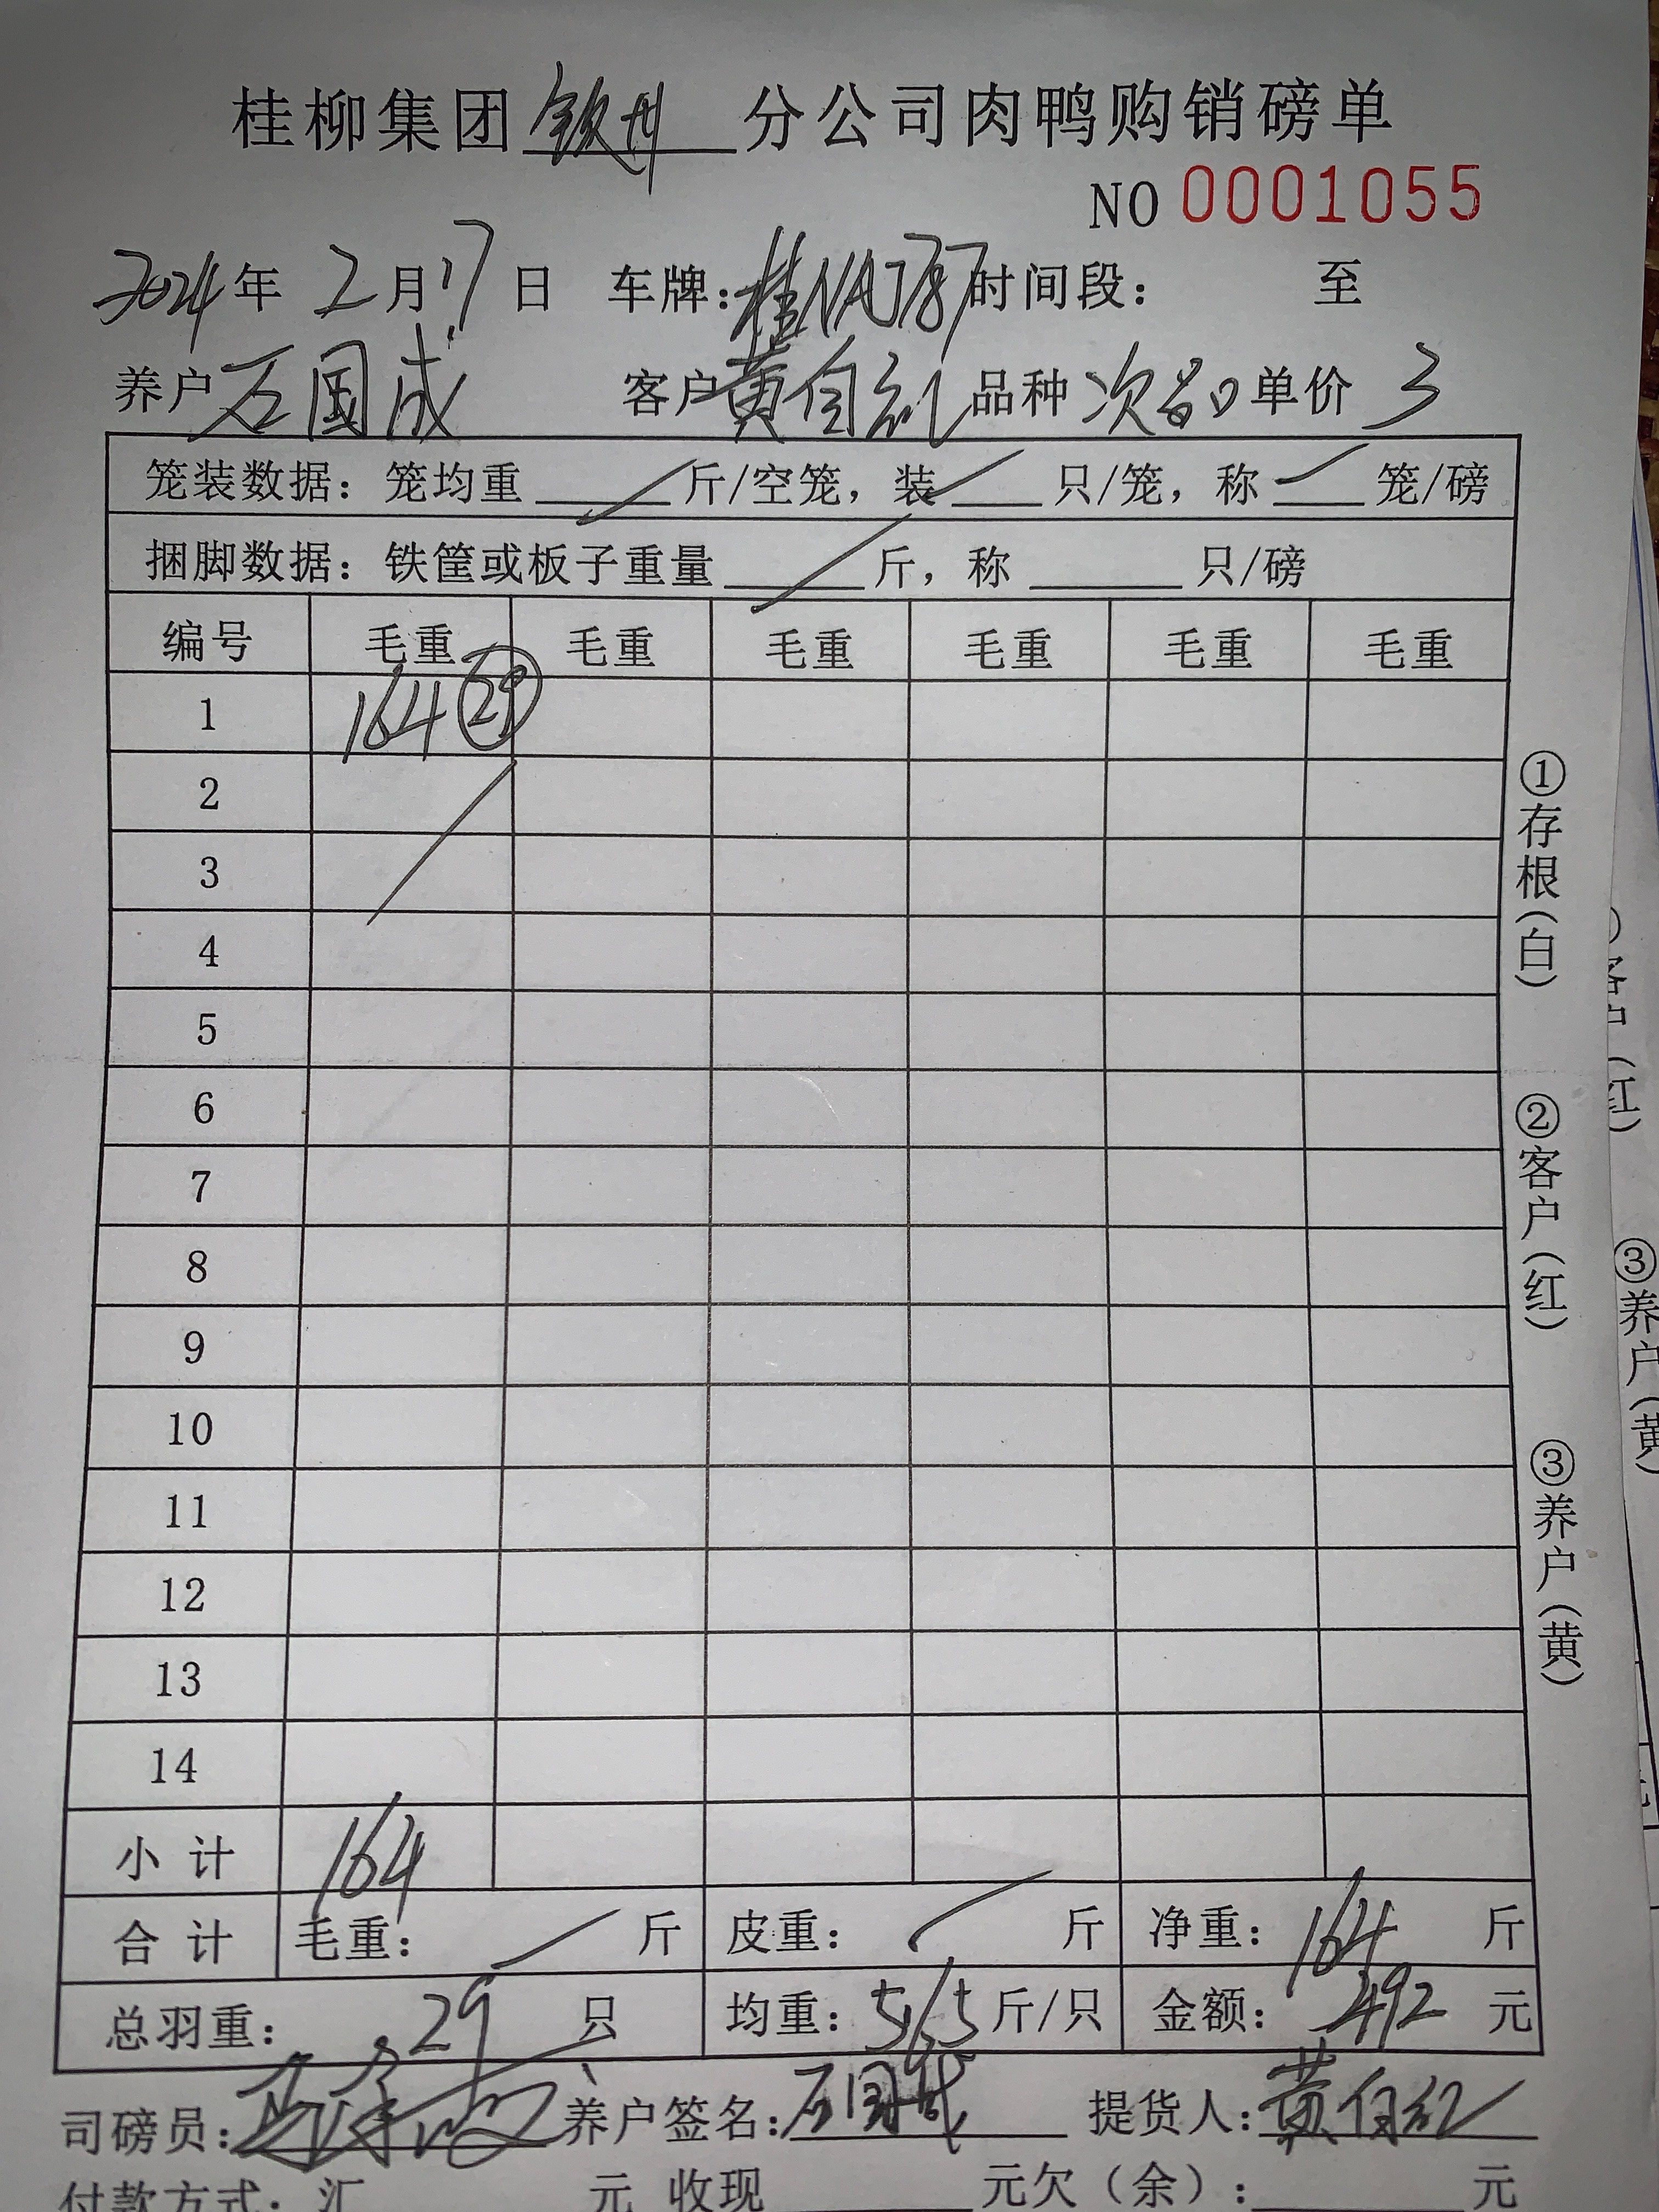 桂柳集团钦州分公司肉鸭购销磅单
NO 0001055
2024年 2月17日 车牌:桂NAJ787时间段: 至
养户石国成 客户黄自红品种 次品 单价 3
笼装数据: 笼均重 斤/空笼, 装 只/笼, 称 笼/磅
捆脚数据: 铁筐或板子重量 斤, 称 只/磅
编号 毛重 毛重 毛重 毛重 毛重 毛重
1 164 29
2
3
4
5
6
7
8
9
10
11
12
13
14
小 计 164
合 计 毛重: 斤 皮重: 斤 净重: 164 斤
总羽重: 29 只 均重: 5.65 斤/只 金额: 492 元
司磅员: 养户签名:石国成 提货人:黄自红
付款方式: 汇 元 收现 元欠(余): 元
①存根(白)
②客户(红)
③养户(黄)
客户(红)
③养户(黄)